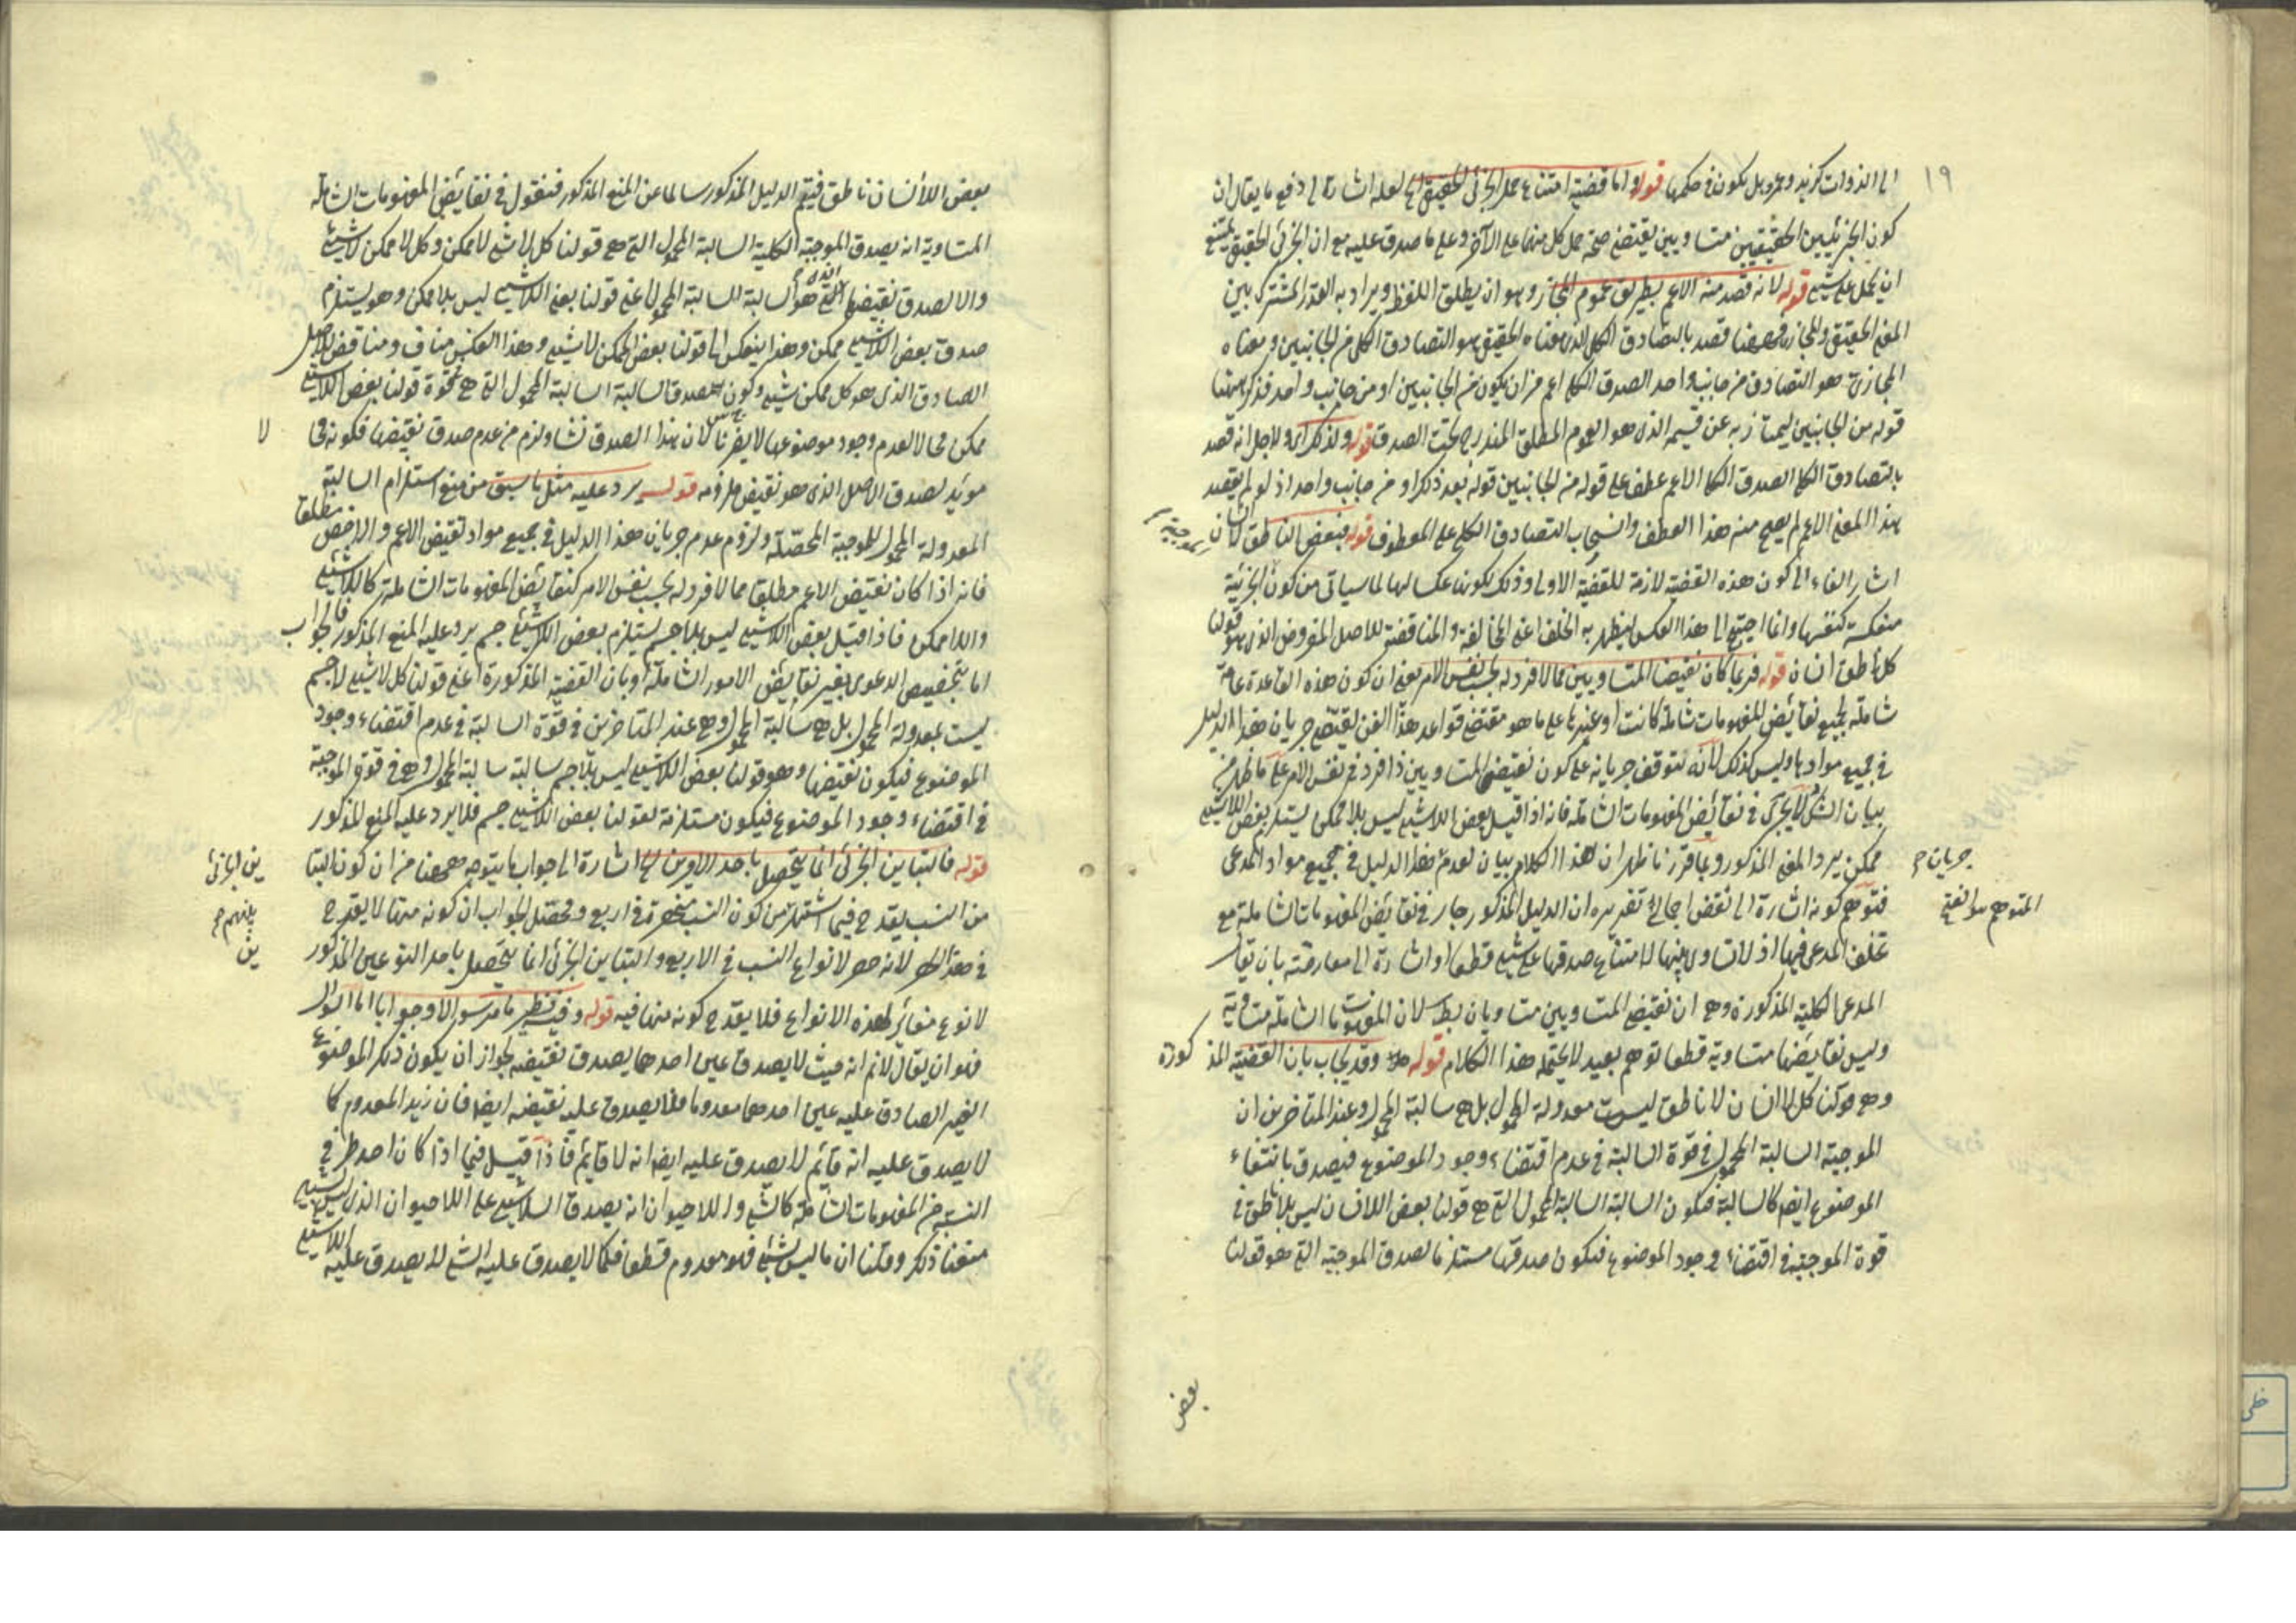 ١٩
الى الذوات كزيد وعمرو بل يكون في حكمها قوله واما قضية امتناع حمل الجزئى الحقيقى الخ لعله اشارة الى دفع ما يقال ان
كون الجزئيين الحقيقيين متساويين يقتضى صحة حمل كل منهما على الآخر وعلى ما صدق عليه مع ان الجزئى الحقيقى يمتنع
ان يحمل على شيئ قوله لانه قصد منه الاعم بطريق عموم المجاز وهو ان يطلق اللفظ ويراد به القدر المشترك بين
المعنى الحقيقى والمجازى فههنا قصد بالتصادق الكلى الذى معناه الحقيقى هو التصادق الكلى من الجانبين ومعناه
المجازى هو التصادق من جانب واحد الصدق الكلى اعم من ان يكون من الجانبين او من جانب واحد فذكر ههنا
قوله من الجانبين ليمتاز به عن قسيمه الذى هو العموم المطلق المندرج تحت الصدق قوله ولذكر اى ولاجل انه قصد
بالتصادق الكلى الصدق الكلى الاعم عطف على قوله من الجانبين قوله بعد ذكر او من جانب واحد اذ لو لم يقصد
بهذا المعنى الاعم لم يصح منه هذا العطف وانسحاب التصادق الكلى على المعطوف قوله فبعض الناطق لا انسان
اشار بالفاء الى كون هذه القضية لازمة للقضية الاولى وذلك لكونها عكسا لها لما سياتى من كون الجزئية
الموجبة
منعكسة كنفسها وانما احتيج الى هذا العكس ليظهر به الخلف اعنى المخالفة والمناقضة للاصل المفروض الذى هو قولنا
كل ناطق انسان قوله فربما كان نقيضا المتساويين مما لا فرد له بحسب نفس الامر يعنى ان كون هذه القاعدة عامة
شاملة لجميع نقائض المفهومات شاملة كانت او غيرها على ما هو مقتضى قواعد هذا الفن يقتضى جريان هذا الدليل
في جميع موادها وليس كذلك لانه يتوقف جريانه على كون نقيضى المتساويين ذا فرد في نفس الامر على ما ظهر من
بيان الش لا يجرى في نقائض المفهومات الشاملة فانه اذا قيل بعض اللاشيئ ليس بلا ممكن يستلزم بعض اللاشيئ
ممكن يرد المنع المذكور وبما قررنا ظهر ان هذا الكلام بيان لعدم هذا الدليل في جميع مواد المدعى
جريان
فتوهم كونه اشارة الى نقض اجمالى تقريره ان الدليل المذكور جار في نقائض المفهومات الشاملة مع
المتوهم هو الفتى
تخلف المدعى فيها اذ لا تساوى بينها لامتناع صدقها على شيئ قطعا او اشارة الى معارضته بان يقال
المدعى الكلية المذكورة وهى ان نقيضى المتساويين متساويان بط لان المفهومات الشاملة متساوية
وليس نقائضها متساوية قطعا توهم بعيد لا يحتمله هذا الكلام قوله وقد يجاب بان القضية المذكورة
وهى قولنا كل لا انسان لا ناطق ليست معدولة المحمول بل هى سالبة المحمول وعند المتاخرين ان
الموجبة السالبة المحمول في قوة السالبة في عدم اقتضاء وجود الموضوع فيصدق بانتفاء
الموضوع ايضا كالسالبة فيكون السالبة السالبة المحمول التى هى قولنا بعض اللا انسان ليس بلا ناطق في
قوة الموجبة في اقتضاء وجود الموضوع فيكون صدقها مستلزما لصدق الموجبة التى هو قولنا
بعض
بعض اللا انسان ناطق فيتم الدليل المذكور سالما عن المنع المذكور فنقول في نقائض المفهومات الشاملة
المتساوية انه يصدق الموجبة الكلية السالبة المحمول التى هى قولنا كل لا شيئ لا ممكن وكل لا ممكن لا شيئ
والا لصدق نقيضها الذى هو السالبة السالبة المحمول اعنى قولنا بعض اللاشيئ ليس بلا ممكن وهو يستلزم
صدق بعض اللاشيئ ممكن وهذا ينعكس الى قولنا بعض الممكن لا شيئ وهذا العكس مناف ومناقض للاصل
الصادق الذى هو كل ممكن شيئ وكون صدق السالبة السالبة المحمول التى هى في قوة قولنا بعض اللاشيئ
ممكن محالا لعدم وجود موضوعها لا يضرنا لان هذا الصدق نشا ولزم من عدم صدق نقيضها فكونه محالا
مؤيد لصدق الاصل الذى هو نقيض ملزومه قوله يرد عليه مثل ما سبق من منع استلزام السالبة
المعدولة المحمول للموجبة المحصلة ولزوم عدم جريان هذا الدليل في جميع مواد نقيض الاعم والاخص مطلقا
فانه اذا كان نقيض الاعم مطلقا مما لا فرد له بحسب نفس الامر كنقائض المفهومات الشاملة كاللاشيئ
واللا ممكن فاذا قيل بعض اللاشيئ ليس بلا جسم يستلزم بعض اللاشيئ جسم يرد عليه المنع المذكور فالجواب
اما بتخصيص الدعوى بغير نقائض الامور الشاملة او بان القضية المذكورة اعنى قولنا كل لا شيئ لا جسم
ليست بمعدولة المحمول بل هى سالبة المحمول وهى عند المتاخرين في قوة السالبة في عدم اقتضاء وجود
الموضوع فيكون نقيضها وهو قولنا بعض اللاشيئ ليس بلا جسم سالبة سالبة المحمول وهى في قوة الموجبة
في اقتضاء وجود الموضوع فيكون مستلزمة لقولنا بعض اللاشيئ جسم فلا يرد عليه المنع المذكور
قوله فالتباين الجزئى انما يتحصل باحد الامرين الخ اشارة الى جواب ما يتوجه ههنا من ان كون التباين الجزئى
من النسب يقدح فيما اشتهر من كون النسب منحصرة في اربع ومحصل الجواب ان كونه منها لا يقدح
بينهم
في هذا الحصر لانه حصر لانواع النسب في الاربع والتباين الجزئى انما يتحصل باحد النوعين المذكورين
لا نوع مغائر لهذه الانواع فلا يقدح كونه منها فيه قوله وفيه نظر ما مر سؤالا وجوابا اما السؤال
فهو ان يقال لانم انه حيث لا يصدق عين احدهما يصدق نقيضه لجواز ان يكون ذلك الموضوع
الغير الصادق عليه عين احدهما معدوما فلا يصدق عليه نقيضه ايضا فان زيد المعدوم كما
لا يصدق عليه انه قائم لا يصدق عليه ايضا انه لا قائم فاذا قيل فيما اذا كان احد طرفى
النسبة من المفهومات الشاملة كالشيئ واللا حيوان انه يصدق اللاشيئ على اللا حيوان الذى ليس بشيئ
منعنا ذلك وقلنا ان ما ليس بشيئ فهو معدوم قطعا فكما لا يصدق عليه الشيئ لا يصدق عليه اللاشيئ